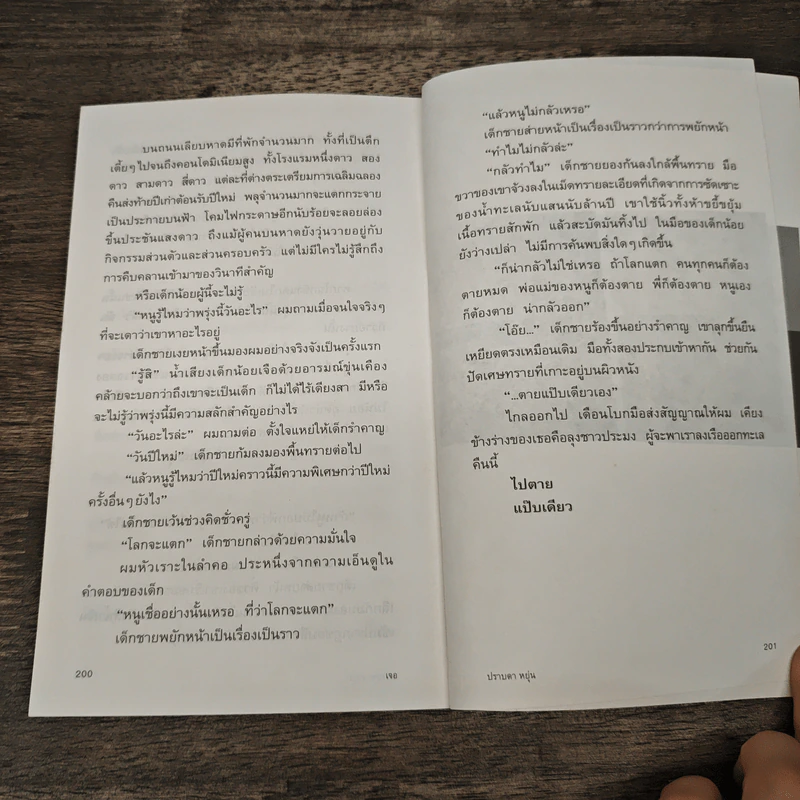 บนถนนเลียบหาดมีที่พักจำนวนมาก ทั้งที่เป็นตึก
เตี้ยๆ ไปจนถึงคอนโดมิเนียมสูง ทั้งโรงแรมหนึ่งดาว สอง
ดาว สามดาว สี่ดาว แต่ละที่ต่างตระเตรียมการเฉลิมฉลอง
คืนส่งท้ายปีเก่าต้อนรับปีใหม่ พลุจำนวนมากจะแตกกระจาย
เป็นประกายบนฟ้า โคมไฟกระดาษอีกนับร้อยจะลอยล่อง
ขึ้นประชันแสงดาว ถึงแม้ผู้คนบนหาดยังวุ่นวายอยู่กับ
กิจกรรมส่วนตัวและส่วนครอบครัว แต่ไม่มีใครไม่รู้สึกถึง
การคืบคลานเข้ามาของวินาทีสำคัญ
หรือเด็กน้อยผู้นี้จะไม่รู้
“หนูรู้ไหมว่าพรุ่งนี้วันอะไร” ผมถามเมื่อจนใจจริงๆ
ที่จะเดาว่าเขาหาอะไรอยู่
เด็กชายเงยหน้าขึ้นมองผมอย่างจริงจังเป็นครั้งแรก
“รู้สิ” น้ำเสียงเด็กน้อยเจือด้วยอารมณ์ขุ่นเคือง
คล้ายจะบอกว่าถึงเขาจะเป็นเด็ก ก็ไม่ได้ไร้เดียงสา มีหรือ
จะไม่รู้ว่าพรุ่งนี้มีความสลักสำคัญอย่างไร
“วันอะไรล่ะ” ผมถามต่อ ตั้งใจแหย่ให้เด็กรำคาญ
“วันปีใหม่” เด็กชายก้มลงมองพื้นทรายต่อไป
“แล้วหนูรู้ไหมว่าปีใหม่คราวนี้มีความพิเศษกว่าปีใหม่
ครั้งอื่นๆ ยังไง”
เด็กชายเว้นช่วงคิดชั่วครู่
“โลกจะแตก” เด็กชายกล่าวด้วยความมั่นใจ
ผมหัวเราะในลำคอ ประหนึ่งจากความเอ็นดูใน
คำตอบของเด็ก
“หนูเชื่ออย่างนั้นเหรอ ที่ว่าโลกจะแตก”
เด็กชายพยักหน้าเป็นเรื่องเป็นราว
200
เจอ
“แล้วหนูไม่กลัวเหรอ”
เด็กชายส่ายหน้าเป็นเรื่องเป็นราวกว่าการพยักหน้า
“ทำไมไม่กลัวล่ะ”
“กลัวทำไม” เด็กชายยองก้นลงใกล้พื้นทราย มือ
ขวาของเขาจ้วงลงในเม็ดทรายละเอียดที่เกิดจากการซัดเซาะ
ของน้ำทะเลนับแสนนับล้านปี เขาใช้นิ้วทั้งห้าขยี้ขยุ้ม
เนื้อทรายสักพัก แล้วสะบัดมันทิ้งไป ในมือของเด็กน้อย
ยังว่างเปล่า ไม่มีการค้นพบสิ่งใดๆ เกิดขึ้น
“ก็น่ากลัวไม่ใช่เหรอ ถ้าโลกแตก คนทุกคนก็ต้อง
ตายหมด พ่อแม่ของหนูก็ต้องตาย พี่ก็ต้องตาย หนูเอง
ก็ต้องตาย น่ากลัวออก”
“โอ๊ย...” เด็กชายร้องขึ้นอย่างรำคาญ เขาลุกขึ้นยืน
เหยียดตรงเหมือนเดิม มือทั้งสองประกบเข้าหากัน ช่วยกัน
ปัดเศษทรายที่เกาะอยู่บนผิวหนัง
“...ตายแป๊บเดียวเอง”
ไกลออกไป เดือนโบกมือส่งสัญญาณให้ผม เคียง
ข้างร่างของเธอคือลุงชาวประมง ผู้จะพาเราลงเรือออกทะเล
คืนนี้
ไปตาย
แป๊บเดียว
ปราบดา หยุ่น
201